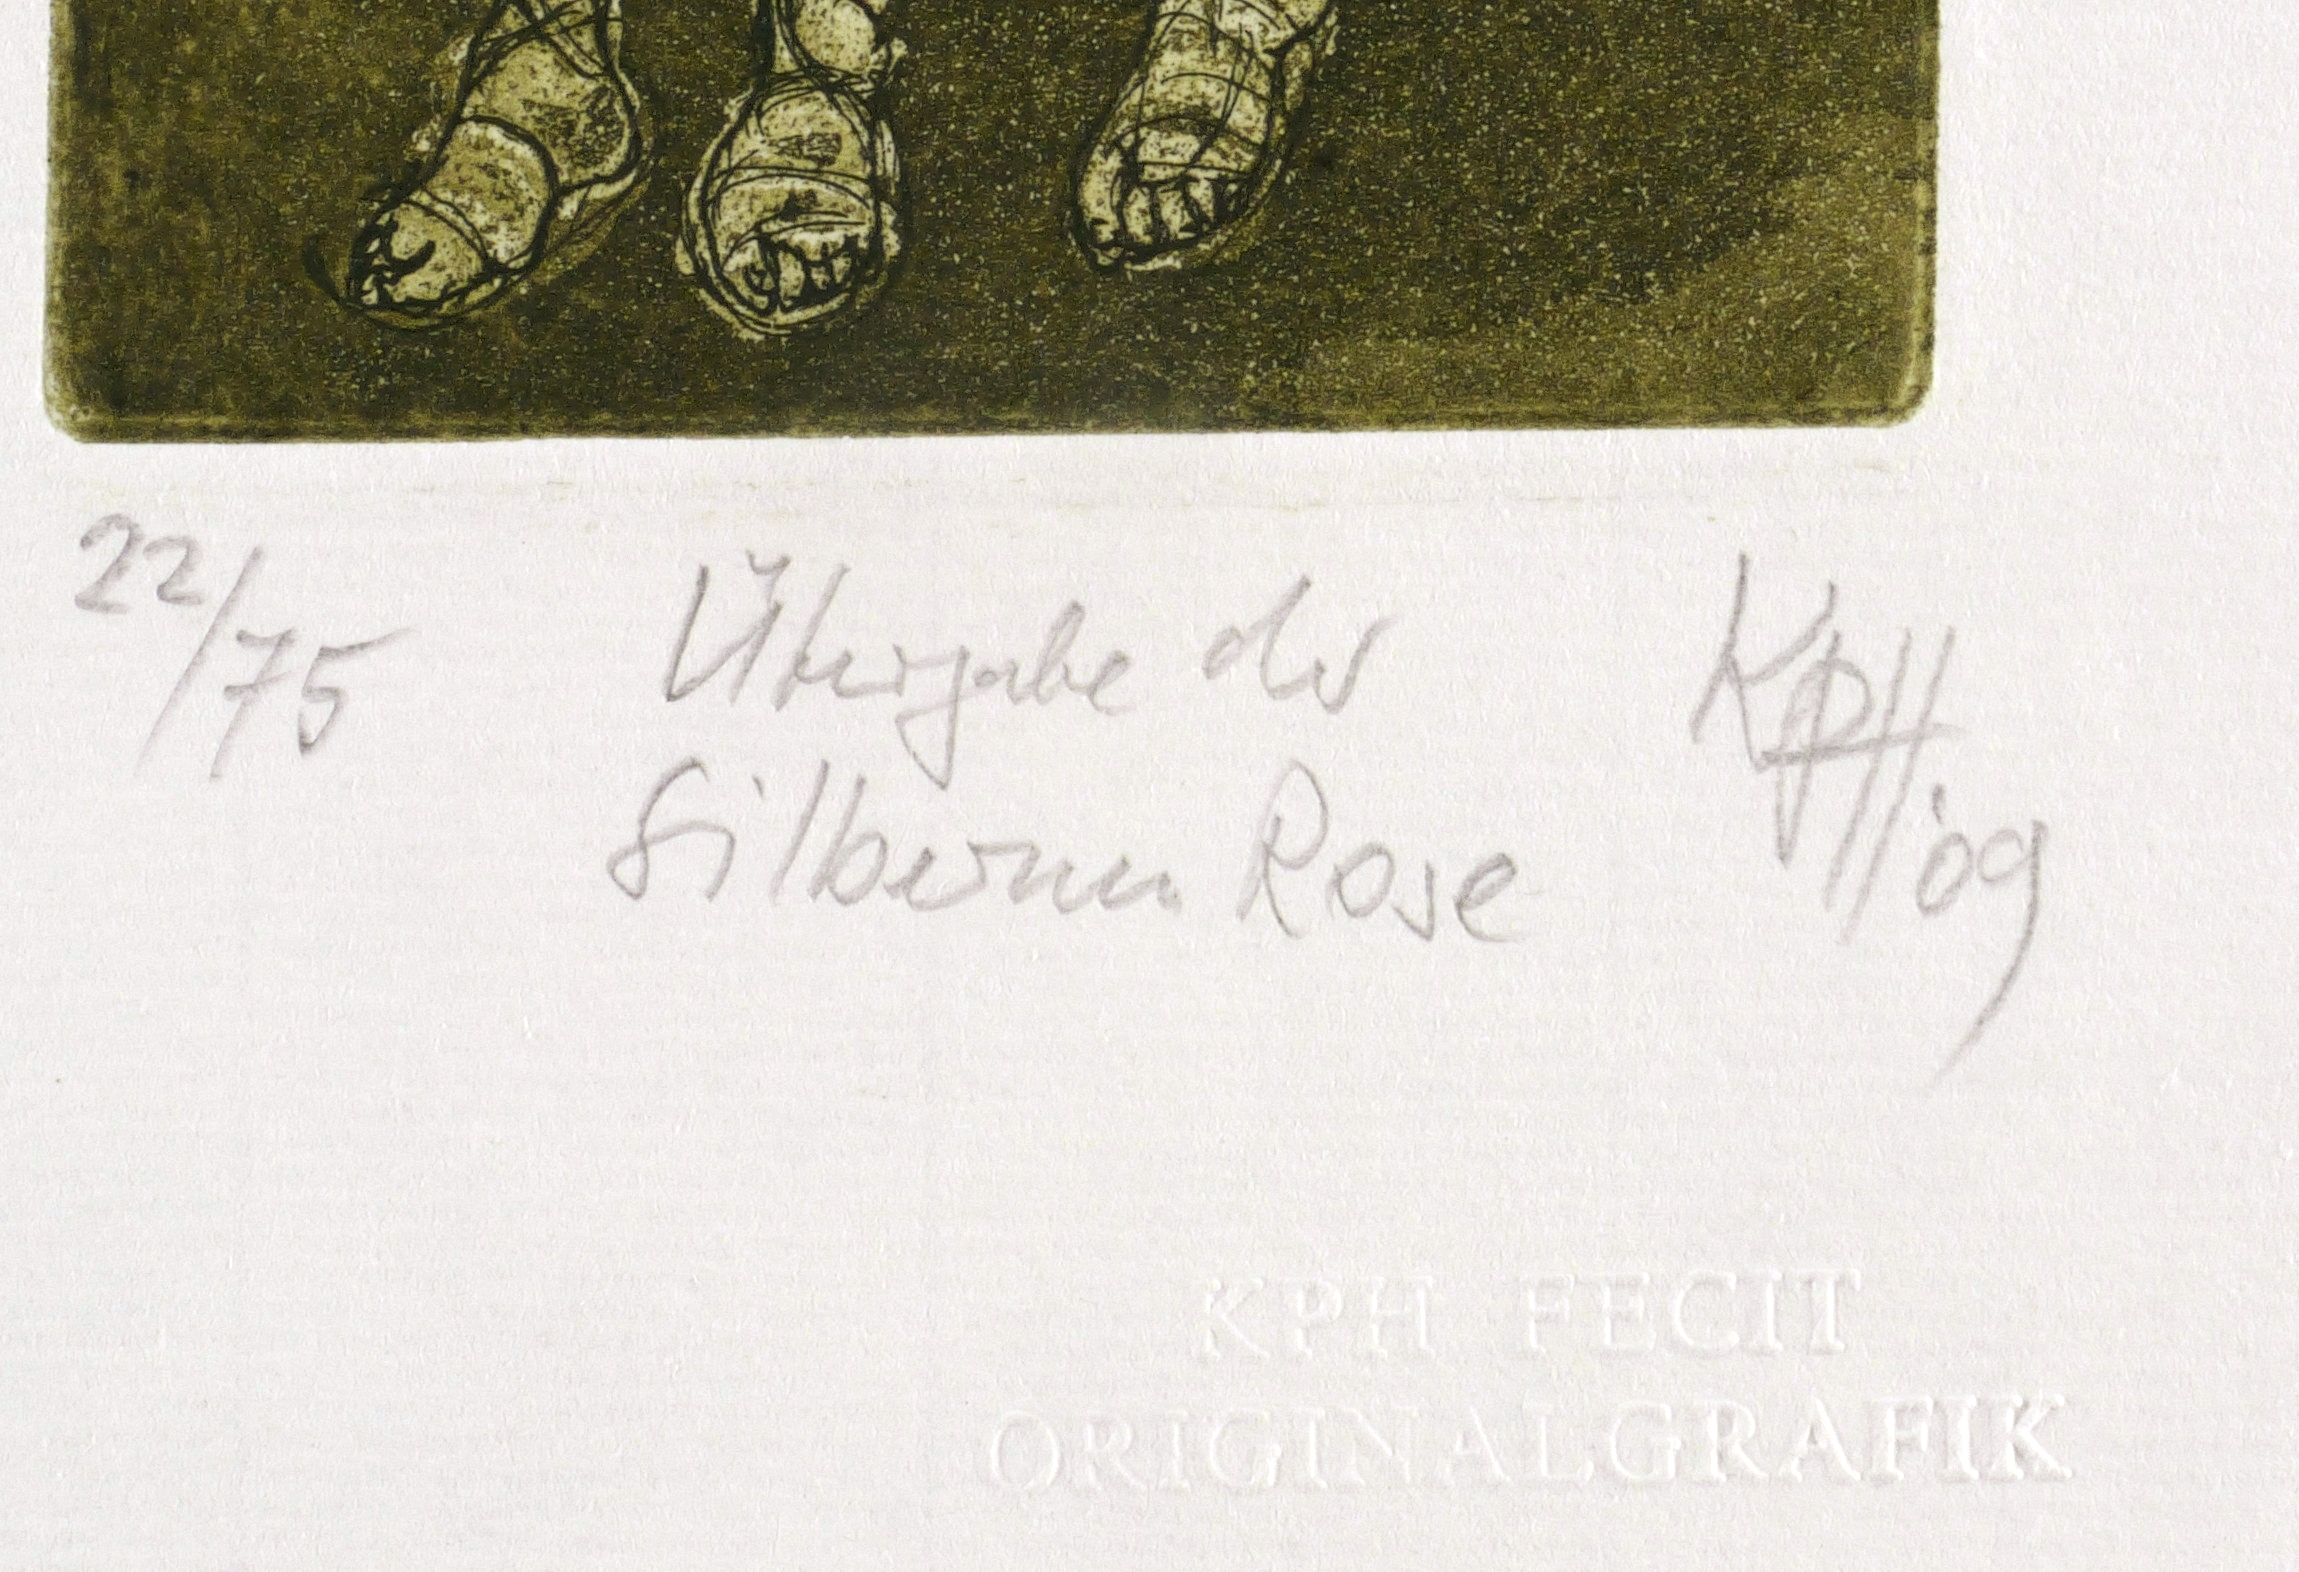 22/75
Übergabe der
Silbernen Rose
KPH '09
KPH FECIT
ORIGINALGRAFIK